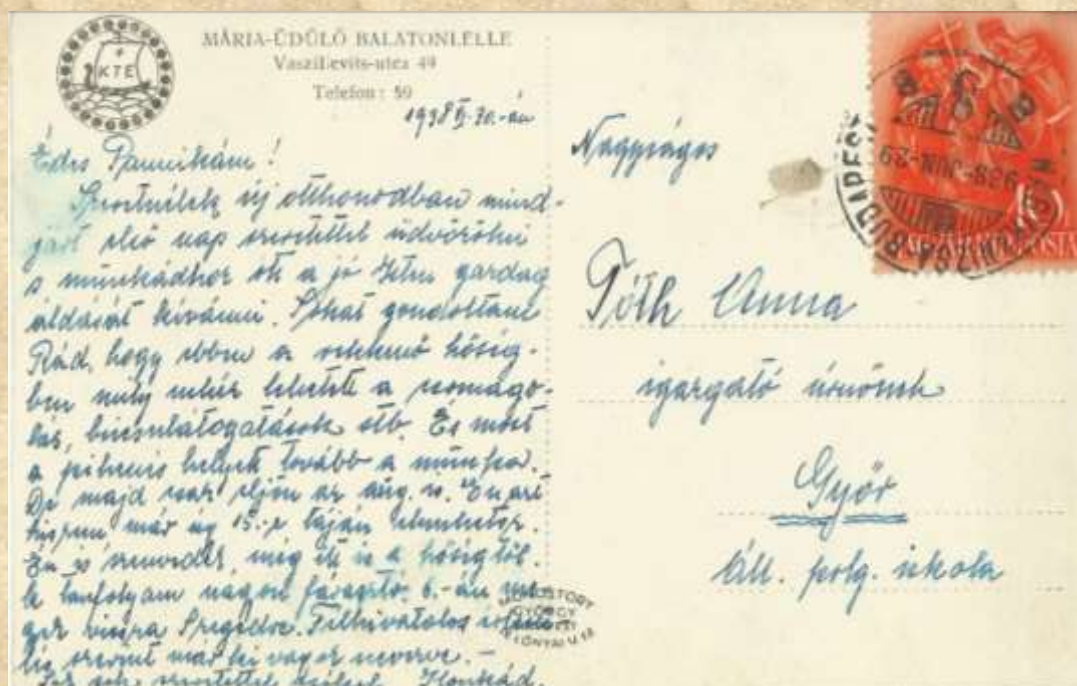 MÁRIA-ÜDÜLŐ BALATONLELLE
Vaszilievits-utca 49
Telefon: 59
KTE
1938 30.-án
Édes Pannikám!
Szeretnélek új otthonodban mind-
járt első nap szeretettel üdvözölni
s munkádhoz a jó Isten gazdag
áldását kívánni. Sokat gondoltam
Rád, hogy ebben a rekkenő hőség-
ben mily nehéz lehetett a csomago-
lás, búcsúlátogatások stb. És most
a pihenés helyett tovább a munka.
De majd csak eljön az aug. is. Én azt
hiszem már aug 15.-e táján elmehetsz.
Én is szenvedek, még itt is a hőségtől.
A tanfolyam nagyon fárasztó. 6.-án
vissza Szegedre. Félhivatalos
szerint már ki vagy nevezve. -
szeretettel Ilonkád.
Nagyságos
Tóth Anna
igazgató úrnőnek
Győr
Áll. polg. iskola
BUDAPEST
938 JUN. 29
GYÖRGY